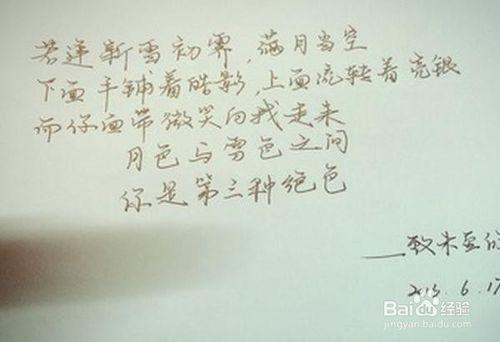 若逢新雪初霁,满月当空
下面平铺着皓影,上面流转着亮银
而你面带微笑向我走来
月色与雪色之间
你是第三种绝色
——致朱亚的
2015.6.17
Baidu经验
jingyan.baidu.com